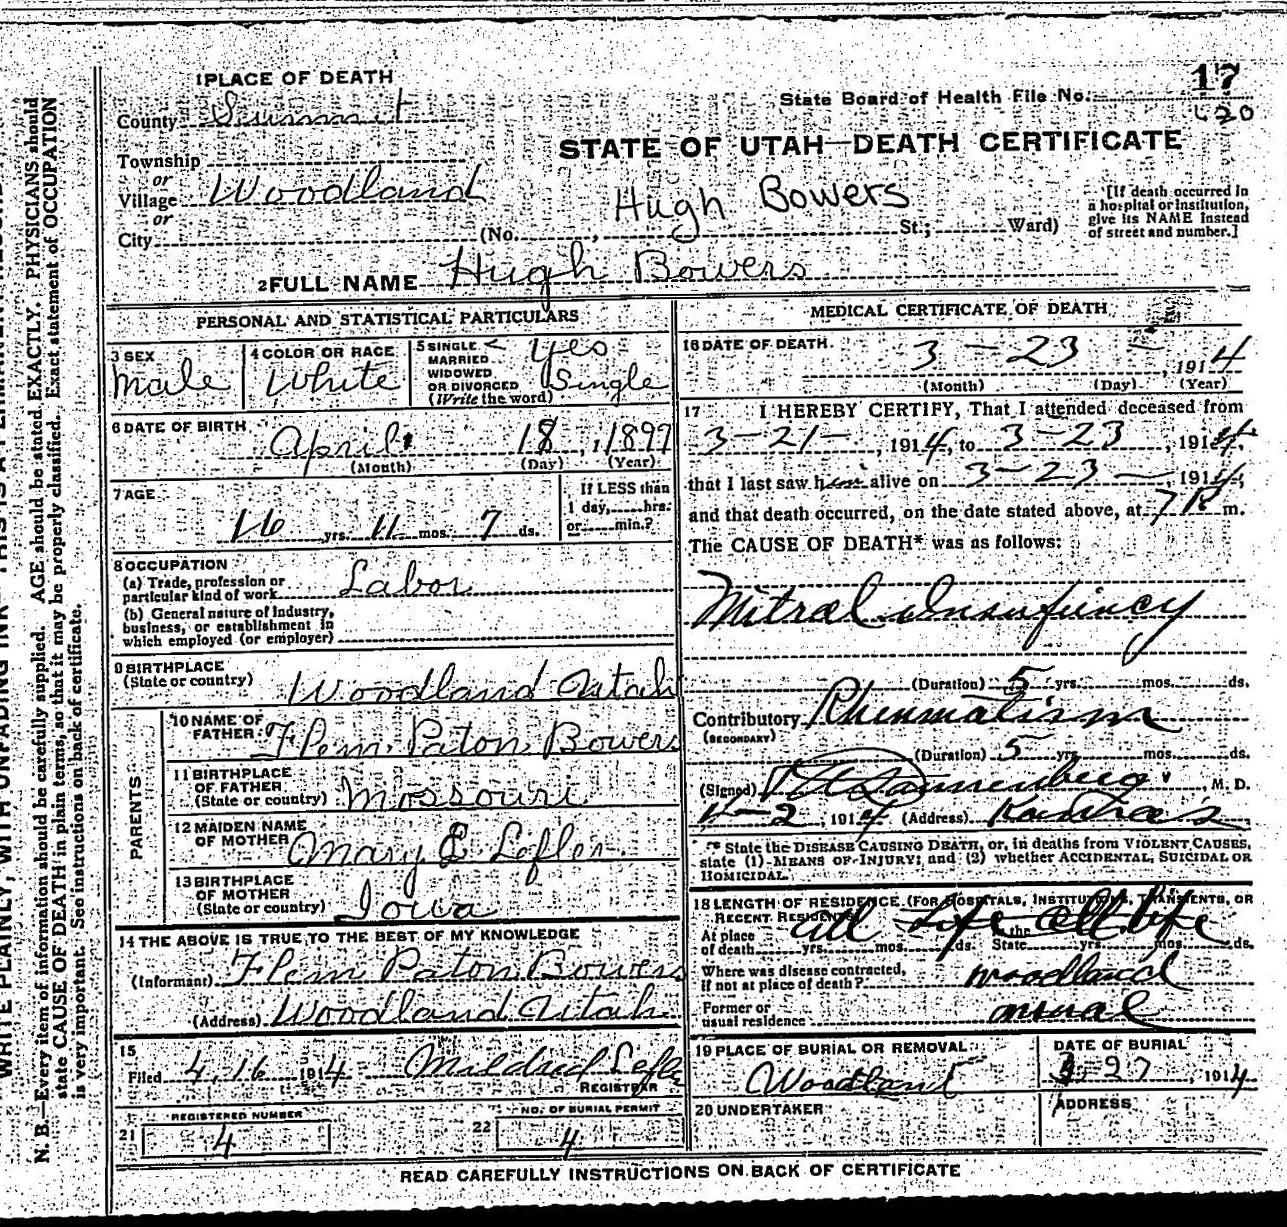 17
1 PLACE OF DEATH
State Board of Health File No. 20
County Summit
STATE OF UTAH—DEATH CERTIFICATE
Township
or
Village Woodland
or
City (No. , St.; Ward)
Hugh Bowers
[If death occurred in
a hospital or institution,
give its NAME instead
of street and number.]
2 FULL NAME Hugh Bowers
PERSONAL AND STATISTICAL PARTICULARS
3 SEX
Male
4 COLOR OR RACE
White
5 SINGLE Yes
MARRIED
WIDOWED
OR DIVORCED Single
(Write the word)
6 DATE OF BIRTH
April 18, 1897
(Month) (Day) (Year)
7 AGE
16 yrs. 11 mos. 7 ds.
If LESS than
1 day, hrs.
or min.?
8 OCCUPATION
(a) Trade, profession or
particular kind of work Labor
(b) General nature of industry,
business, or establishment in
which employed (or employer)
9 BIRTHPLACE
(State or country) Woodland Utah
PARENTS
10 NAME OF
FATHER Flem Paton Bowers
11 BIRTHPLACE
OF FATHER
(State or country) Mossouri
12 MAIDEN NAME
OF MOTHER Mary E Lefler
13 BIRTHPLACE
OF MOTHER
(State or country) Iowa
14 THE ABOVE IS TRUE TO THE BEST OF MY KNOWLEDGE
(Informant) Flem Paton Bowers
(Address) Woodland Utah
15
Filed 4, 16 1914 Mildred Lefler
REGISTRAR
REGISTERED NUMBER
21 4
NO. OF BURIAL PERMIT
22 4
MEDICAL CERTIFICATE OF DEATH
16 DATE OF DEATH
3 — 23 — , 1914
(Month) (Day) (Year)
17 I HEREBY CERTIFY, That I attended deceased from
3-21-, 1914, to 3-23, 1914
that I last saw him alive on 3-23-, 1914,
and that death occurred, on the date stated above, at 7 m.
The CAUSE OF DEATH* was as follows:
Mitral Insufiency
(Duration) 5 yrs. mos. ds.
Contributory Rheumatism
(SECONDARY)
(Duration) 5 yrs. mos. ds.
(Signed) M. D.
4-2, 1914 (Address)
* State the DISEASE CAUSING DEATH, or, in deaths from VIOLENT CAUSES,
state (1) MEANS OF INJURY; and (2) whether ACCIDENTAL, SUICIDAL OR
HOMICIDAL.
18 LENGTH OF RESIDENCE (FOR HOSPITALS, INSTITUTIONS, TRANSIENTS, OR
RECENT RESIDENTS)
At place of death All Life yrs. mos. ds. the State All Life yrs. mos. ds.
Where was disease contracted,
if not at place of death? Woodland
Former or
usual residence
19 PLACE OF BURIAL OR REMOVAL
Woodland
DATE OF BURIAL
3-27, 1914
20 UNDERTAKER
ADDRESS
READ CAREFULLY INSTRUCTIONS ON BACK OF CERTIFICATE
WRITE PLAINLY, WITH UNFADING INK—THIS IS A PERMANENT RECORD
N. B.—Every item of information should be carefully supplied. AGE should be stated EXACTLY. PHYSICIANS should
state CAUSE OF DEATH in plain terms, so that it may be properly classified. Exact statement of OCCUPATION
is very important. See instructions on back of certificate.